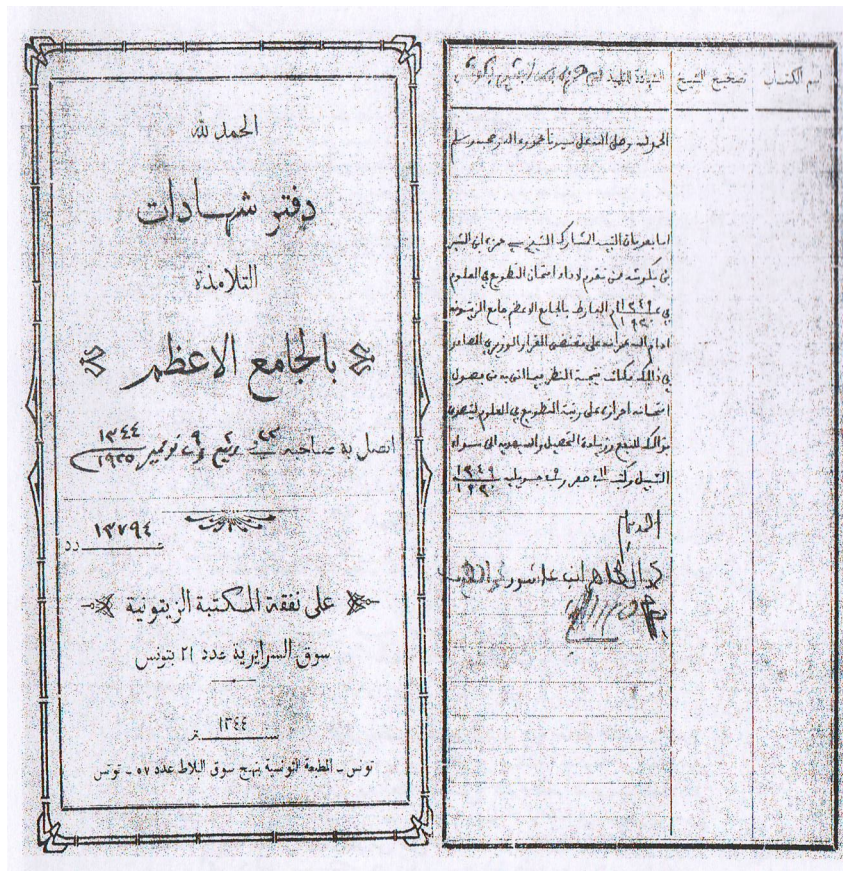 الحمد لله
دفتر شهادات
التلامذة
بالجامع الاعظم
اتصل به صاحبه ٢٢ ربيع ٢ و ٩ نوفمبر ١٣٤٤ ١٩٢٥
عدد ١٣٧٩٤
على نفقة المكتبة الزيتونية
سوق السرايرية عدد ٢١ بتونس
سنة ١٣٤٤
تونس ـ المطبعة التونسية بنهج سوق البلاط عدد ٥٧ ـ تونس
اسم الكتاب تصحيح الشيخ الشهادة للتلميذ
الحمد لله وصلى الله على سيدنا محمد وءاله وصحبه وسلم
اما بعد فان النبيه المشارك الشيخ سي حمزه ابن البشير
بن بكوشه ممن تقدم لاداء امتحان التطويع في العلوم
في سنة ١٣٤٩ ١٩٣٠ بالجامع الاعظم جامع الزيتونه
ادام الله عمرانه على مقتضى القرار الوزيري الصادر
في ذالك فكانت نتيجة النظر فيما اتى به من فصول
امتحانه احرازه على رتبة التطويع في العلوم
ذالك للنفع وزيادة التحصيل والله يهديه الى سواء
السبيل وكتب في صفر وفي جويليه ١٣٤٩ ١٩٣٠
الحمد لله
محمد الطاهر ابن عاشور